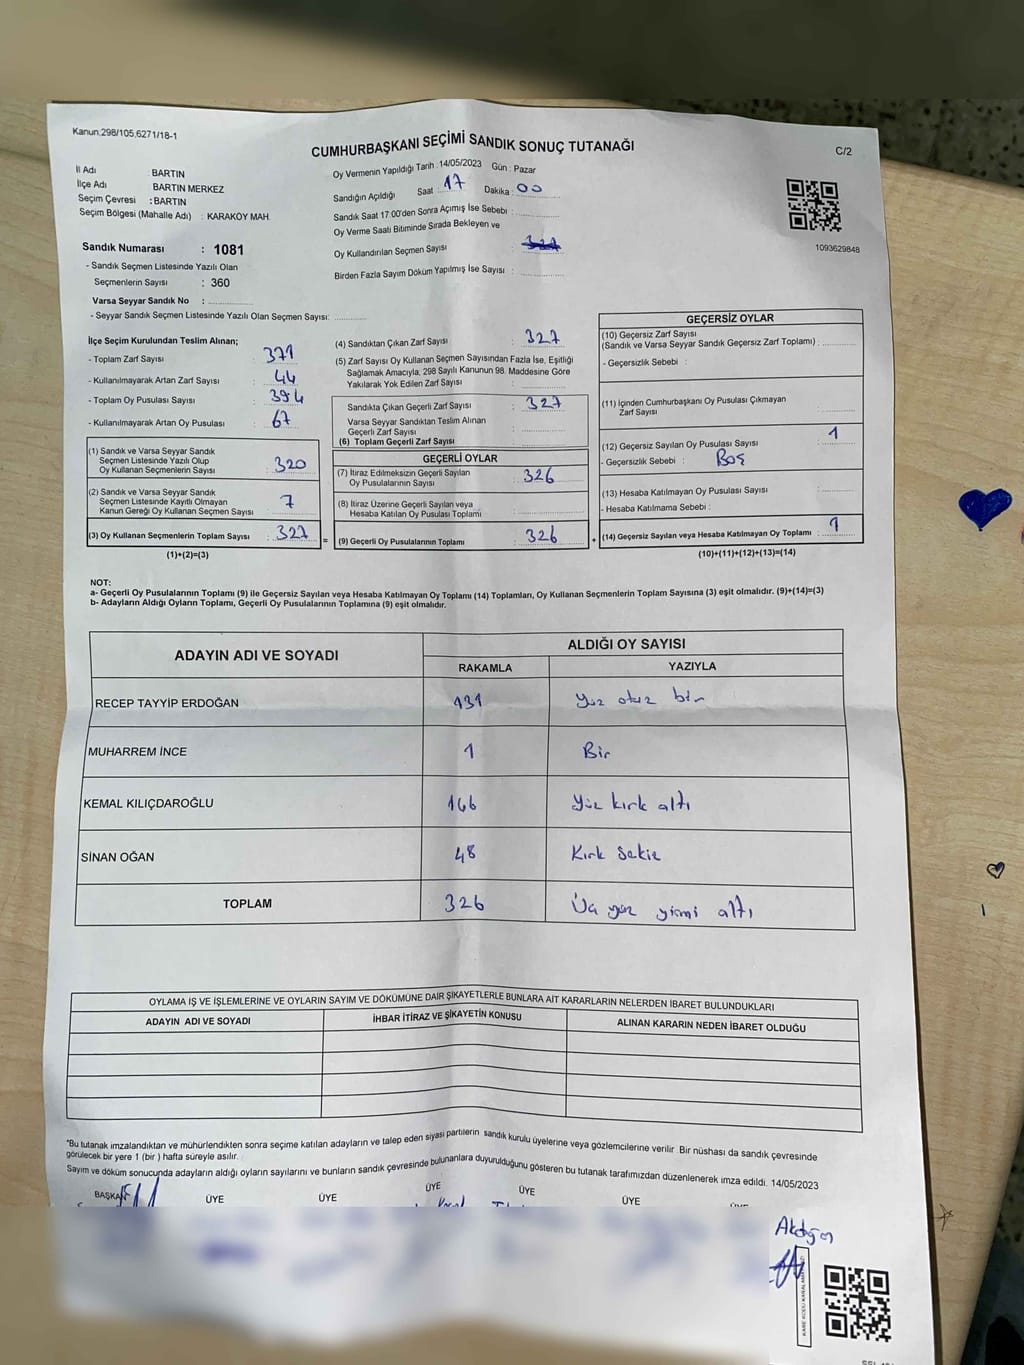 Kanun:298/105,6271/18-1
CUMHURBAŞKANI SEÇİMİ SANDIK SONUÇ TUTANAĞI
C/2
İl Adı : BARTIN
İlçe Adı BARTIN MERKEZ
Seçim Çevresi : BARTIN
Seçim Bölgesi (Mahalle Adı) : KARAKÖY MAH.
Sandık Numarası : 1081
- Sandık Seçmen Listesinde Yazılı Olan
Seçmenlerin Sayısı : 360
Varsa Seyyar Sandık No :
- Seyyar Sandık Seçmen Listesinde Yazılı Olan Seçmen Sayısı:
Oy Vermenin Yapıldığı Tarih : 14/05/2023 Gün : Pazar
Sandığın Açıldığı Saat : 17 Dakika : 00
Sandık Saat 17:00'den Sonra Açımış İse Sebebi :
Oy Verme Saati Bitiminde Sırada Bekleyen ve
Oy Kullandırılan Seçmen Sayısı
Birden Fazla Sayım Döküm Yapılmış İse Sayısı :
1093629848
İlçe Seçim Kurulundan Teslim Alınan;
- Toplam Zarf Sayısı : 371
- Kullanılmayarak Artan Zarf Sayısı : 44
- Toplam Oy Pusulası Sayısı : 394
- Kullanılmayarak Artan Oy Pusulası : 67
(1) Sandık ve Varsa Seyyar Sandık
Seçmen Listesinde Yazılı Olup
Oy Kullanan Seçmenlerin Sayısı : 320
(2) Sandık ve Varsa Seyyar Sandık
Seçmen Listesinde Kayıtlı Olmayan
Kanun Gereği Oy Kullanan Seçmen Sayısı : 7
(3) Oy Kullanan Seçmenlerin Toplam Sayısı : 327
(1)+(2)=(3)
=
(4) Sandıktan Çıkan Zarf Sayısı : 327
(5) Zarf Sayısı Oy Kullanan Seçmen Sayısından Fazla İse, Eşitliği
Sağlamak Amacıyla, 298 Sayılı Kanunun 98. Maddesine Göre
Yakılarak Yok Edilen Zarf Sayısı :
Sandıkta Çıkan Geçerli Zarf Sayısı : 327
Varsa Seyyar Sandıktan Teslim Alınan
Geçerli Zarf Sayısı :
(6) Toplam Geçerli Zarf Sayısı :
GEÇERLİ OYLAR
(7) İtiraz Edilmeksizin Geçerli Sayılan
Oy Pusulalarının Sayısı : 326
(8) İtiraz Üzerine Geçerli Sayılan veya
Hesaba Katılan Oy Pusulası Toplamı :
(9) Geçerli Oy Pusulalarının Toplamı : 326
+
GEÇERSİZ OYLAR
(10) Geçersiz Zarf Sayısı
(Sandık ve Varsa Seyyar Sandık Geçersiz Zarf Toplamı) :
- Geçersizlik Sebebi :
(11) İçinden Cumhurbaşkanı Oy Pusulası Çıkmayan
Zarf Sayısı :
(12) Geçersiz Sayılan Oy Pusulası Sayısı : 1
- Geçersizlik Sebebi : Boş
(13) Hesaba Katılmayan Oy Pusulası Sayısı :
- Hesaba Katılmama Sebebi :
(14) Geçersiz Sayılan veya Hesaba Katılmayan Oy Toplamı : 1
(10)+(11)+(12)+(13)=(14)
NOT:
a- Geçerli Oy Pusulalarının Toplamı (9) ile Geçersiz Sayılan veya Hesaba Katılmayan Oy Toplamı (14) Toplamları, Oy Kullanan Seçmenlerin Toplam Sayısına (3) eşit olmalıdır. (9)+(14)=(3)
b- Adayların Aldığı Oyların Toplamı, Geçerli Oy Pusulalarının Toplamına (9) eşit olmalıdır.
ADAYIN ADI VE SOYADI
ALDIĞI OY SAYISI
RAKAMLA YAZIYLA
RECEP TAYYİP ERDOĞAN 131 Yüz otuz bir
MUHARREM İNCE 1 Bir
KEMAL KILIÇDAROĞLU 146 Yüz kırk altı
SİNAN OĞAN 48 Kırk Sekiz
TOPLAM 326 Üç yüz yirmi altı
OYLAMA İŞ VE İŞLEMLERİNE VE OYLARIN SAYIM VE DÖKÜMÜNE DAİR ŞİKAYETLERLE BUNLARA AİT KARARLARIN NELERDEN İBARET BULUNDUKLARI
ADAYIN ADI VE SOYADI İHBAR İTİRAZ VE ŞİKAYETİN KONUSU ALINAN KARARIN NEDEN İBARET OLDUĞU
*Bu tutanak imzalandıktan ve mühürlendikten sonra seçime katılan adayların ve talep eden siyasi partilerin sandık kurulu üyelerine veya gözlemcilerine verilir Bir nüshası da sandık çevresinde
görülecek bir yere 1 (bir ) hafta süreyle asılır.
Sayım ve döküm sonucunda adayların aldığı oyların sayılarını ve bunların sandık çevresinde bulunanlara duyurulduğunu gösteren bu tutanak tarafımızdan düzenlenerek imza edildi. 14/05/2023
BAŞKAN ÜYE ÜYE ÜYE ÜYE ÜYE